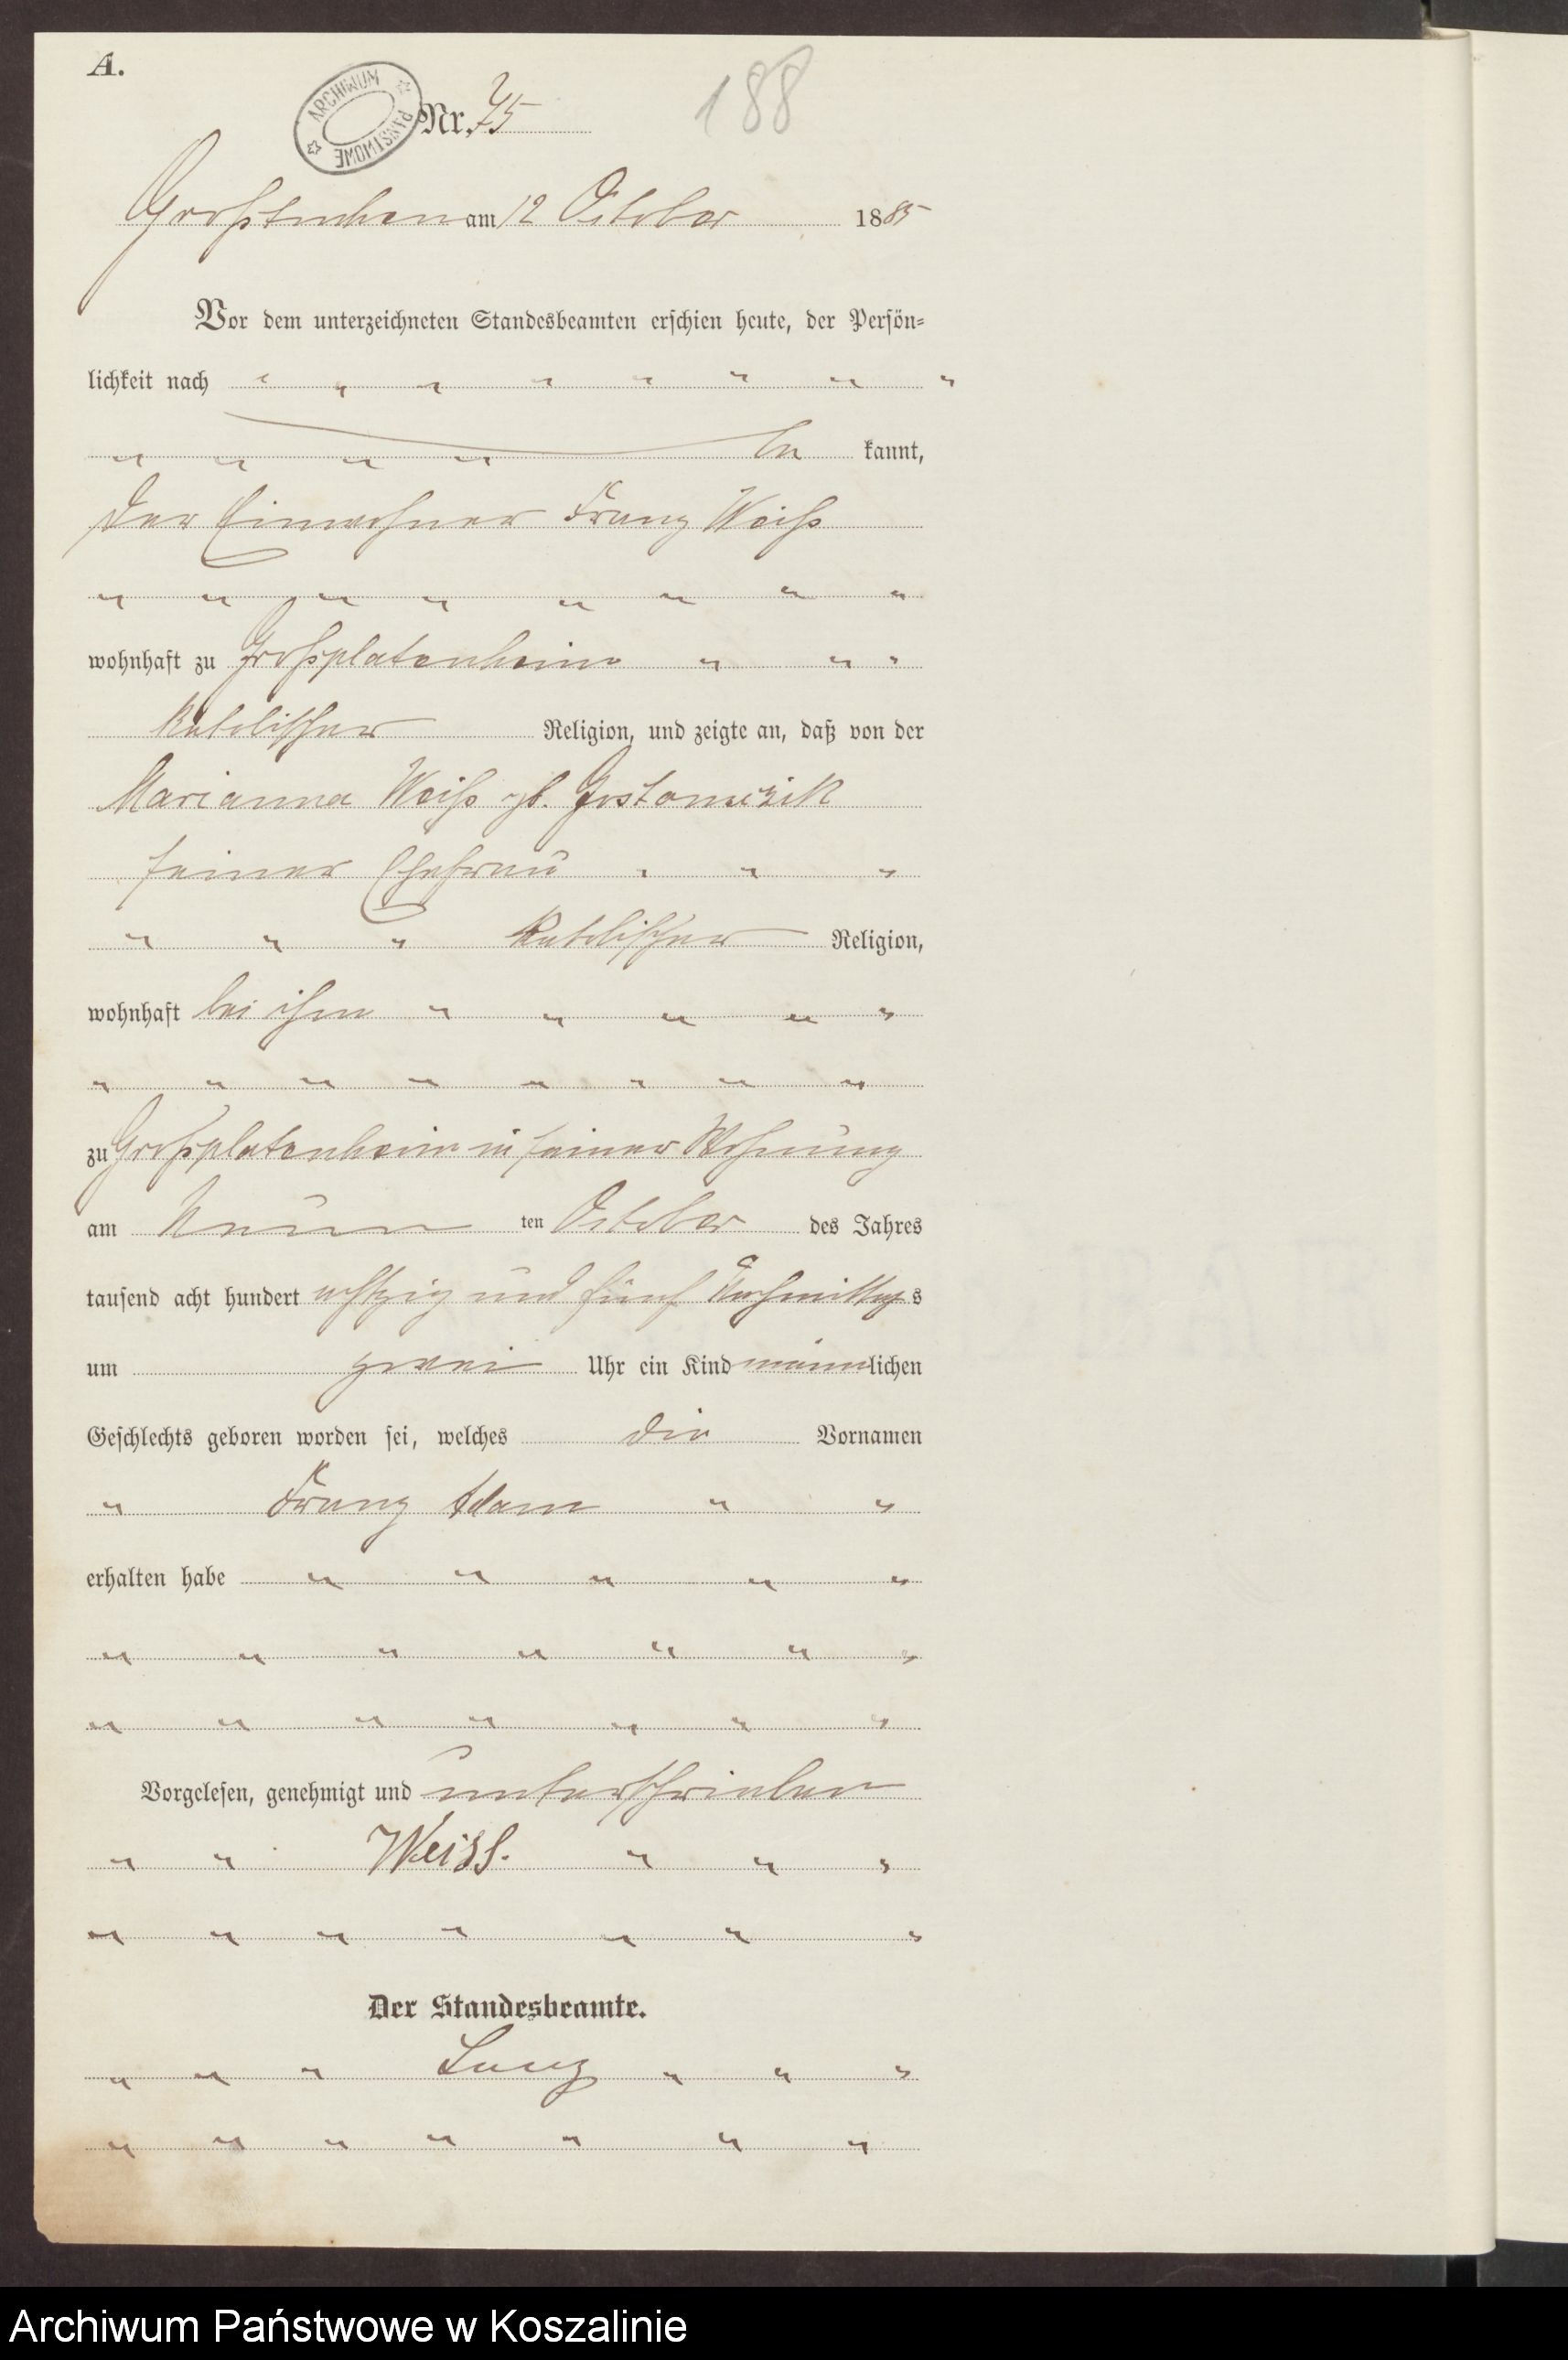 A.
ARCHIWUM PAŃSTWOWE
Nr. 75
188
Großtuchen am 12 October 1885
Vor dem unterzeichneten Standesbeamten erschien heute, der Persön=
lichkeit nach " " " " " " " "
" " " " be kannt,
der Einwohner Franz Weiß
" " " " " " " "
wohnhaft zu Großplatenheim " " "
katolischer Religion, und zeigte an, daß von der
Marianna Weiß gb. Gostomczik
seiner Ehefrau " " "
" " " katolischer Religion,
wohnhaft bei ihm " " " " "
" " " " " " " "
zu Großplatenheim in seiner Wohnung
am Neun ten October des Jahres
tausend acht hundert achtzig und fünf Nachmittags
um zwei Uhr ein Kind männlichen
Geschlechts geboren worden sei, welches die Vornamen
" Franz Adam " "
erhalten habe " " " " "
" " " " " " "
" " " " " " "
Vorgelesen, genehmigt und unterschrieben
" " Weiss. " " "
" " " " " " "
Der Standesbeamte.
" " " " " "
" " " " " " "
Archiwum Państwowe w Koszalinie